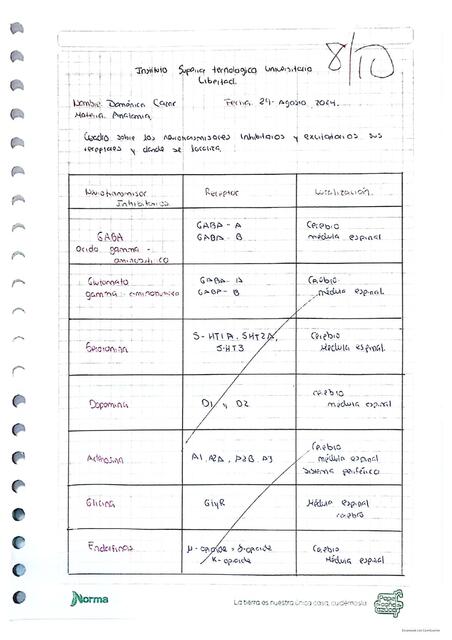 8/10
Instituto Superior tecnologico Universitario
Libertad.
Nombre: Doménica Fecha: 24-Agosto 2024.
Materia: Anatomia.
Cuadro sobre los neurotransmisores Inhibitorios y excitatorios sus
receptores y donde se localiza.
Neurotransmisor
Inhibitorios
Receptor
Localización.
GABA
acido gamma -
aminobutírico
GABA - A
GABA - B
Cerebro
médula espinal
Glutamato
gamma - aminobutirico
GABA - A
GABA - B
Cerebro.
médula espinal.
Serotonina
5-HT1A, 5HT2A,
5HT3
Cerebro
Médula espinal.
Dopamina
D1 y D2
cerebro
médula espinal
Adenosina
A1, A2A, A2B, A3
Cerebro
médula espinal
sistema periférico
Glicina
GlyR
Médula espinal
cerebro
Endorfinas
μ-opioide δ-opioide
K-opioide
Cerebro
Médula espinal
Norma
La tierra es nuestra única casa, cuidémosla